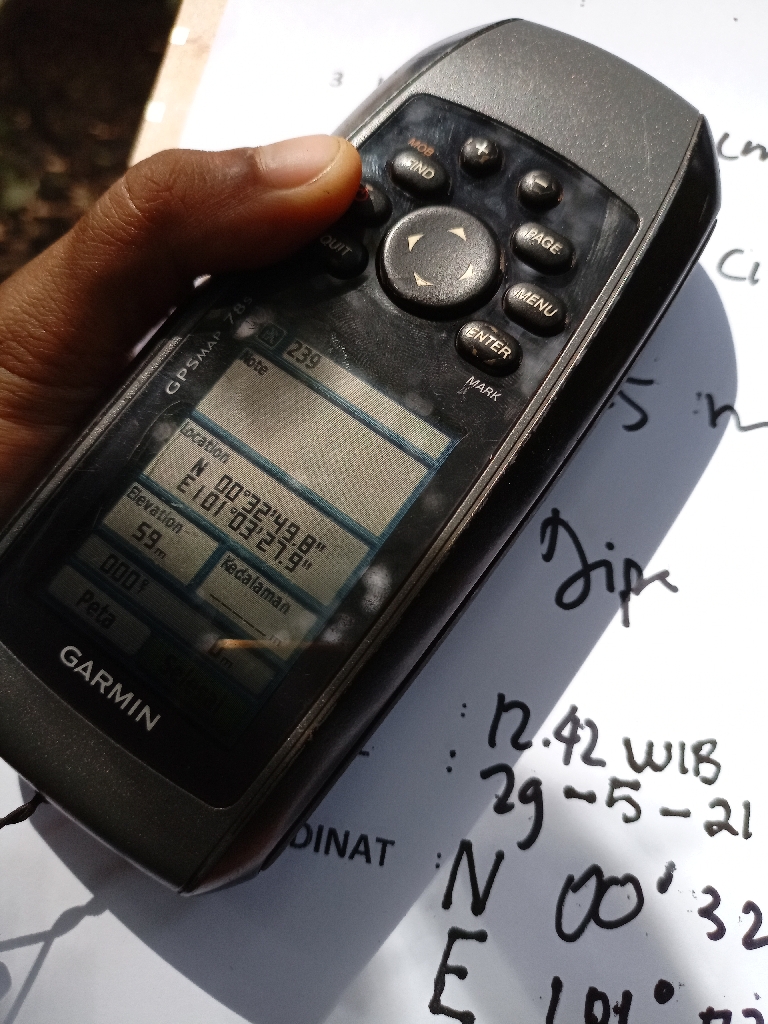 3
MOB
FIND
+
-
PAGE
QUIT
MENU
ENTER
MARK
GPSMAP 78s
239
Note
Location
N 00°32'49.8"
E101°03'27.9"
Elevation
59m
Kedalaman
m
000°
0m
Peta
GARMIN
cm
Ci
.5 m
: 12.42 WIB
: 29-5-21
DINAT : N 00° 32
E 101°